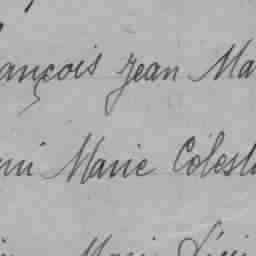 ançois Jean Ma
ni Marie Célest
Mari